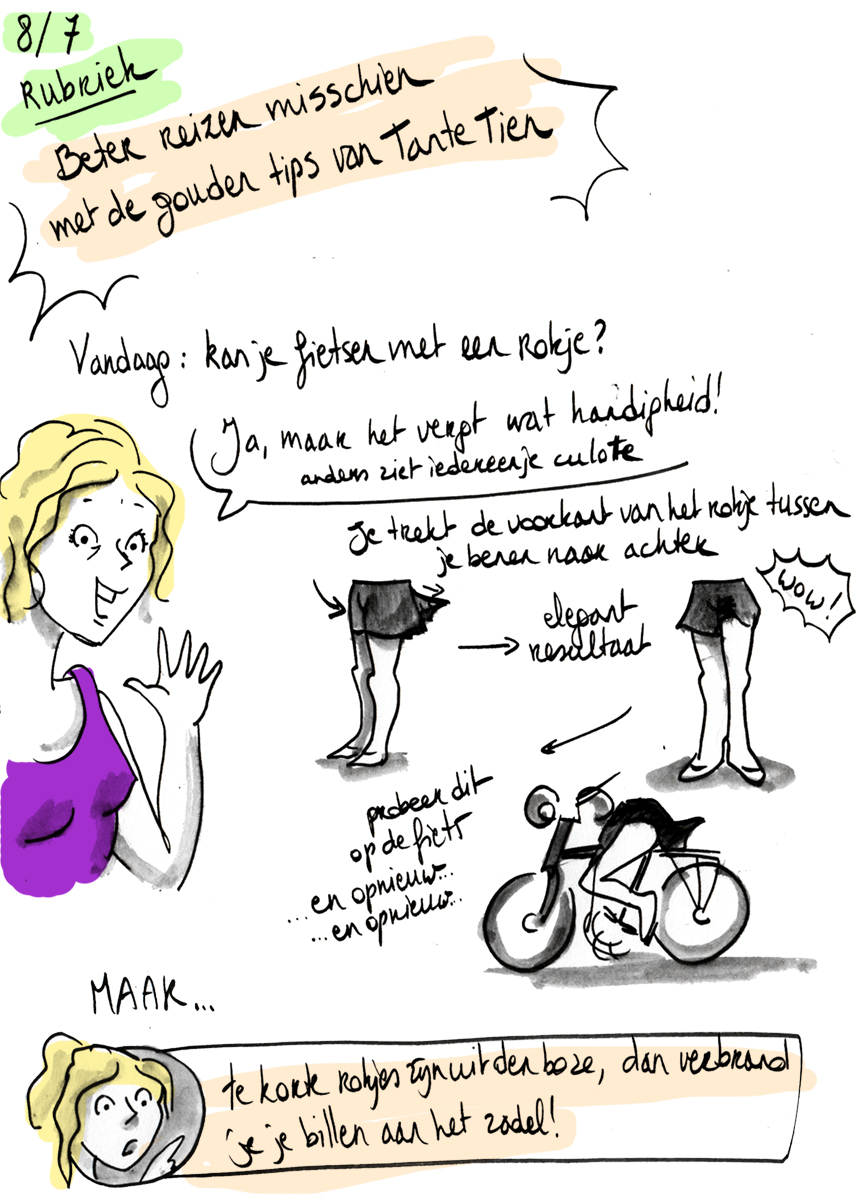 8/7
Rubriek
Beter reizen misschien
met de gouden tips van Tante Tien
Vandaag: kan je fietsen met een rokje?
Ja, maar het vergt wat handigheid!
anders ziet iedereen je culotte
Je trekt de voorkant van het rokje tussen
je benen naar achter
WOW!
elegant
resultaat
probeer dit
op de fiets
...en opnieuw...
...en opnieuw...
MAAR...
te korte rokjes zijn uit den boze, dan verbrand
je je billen aan het zadel!